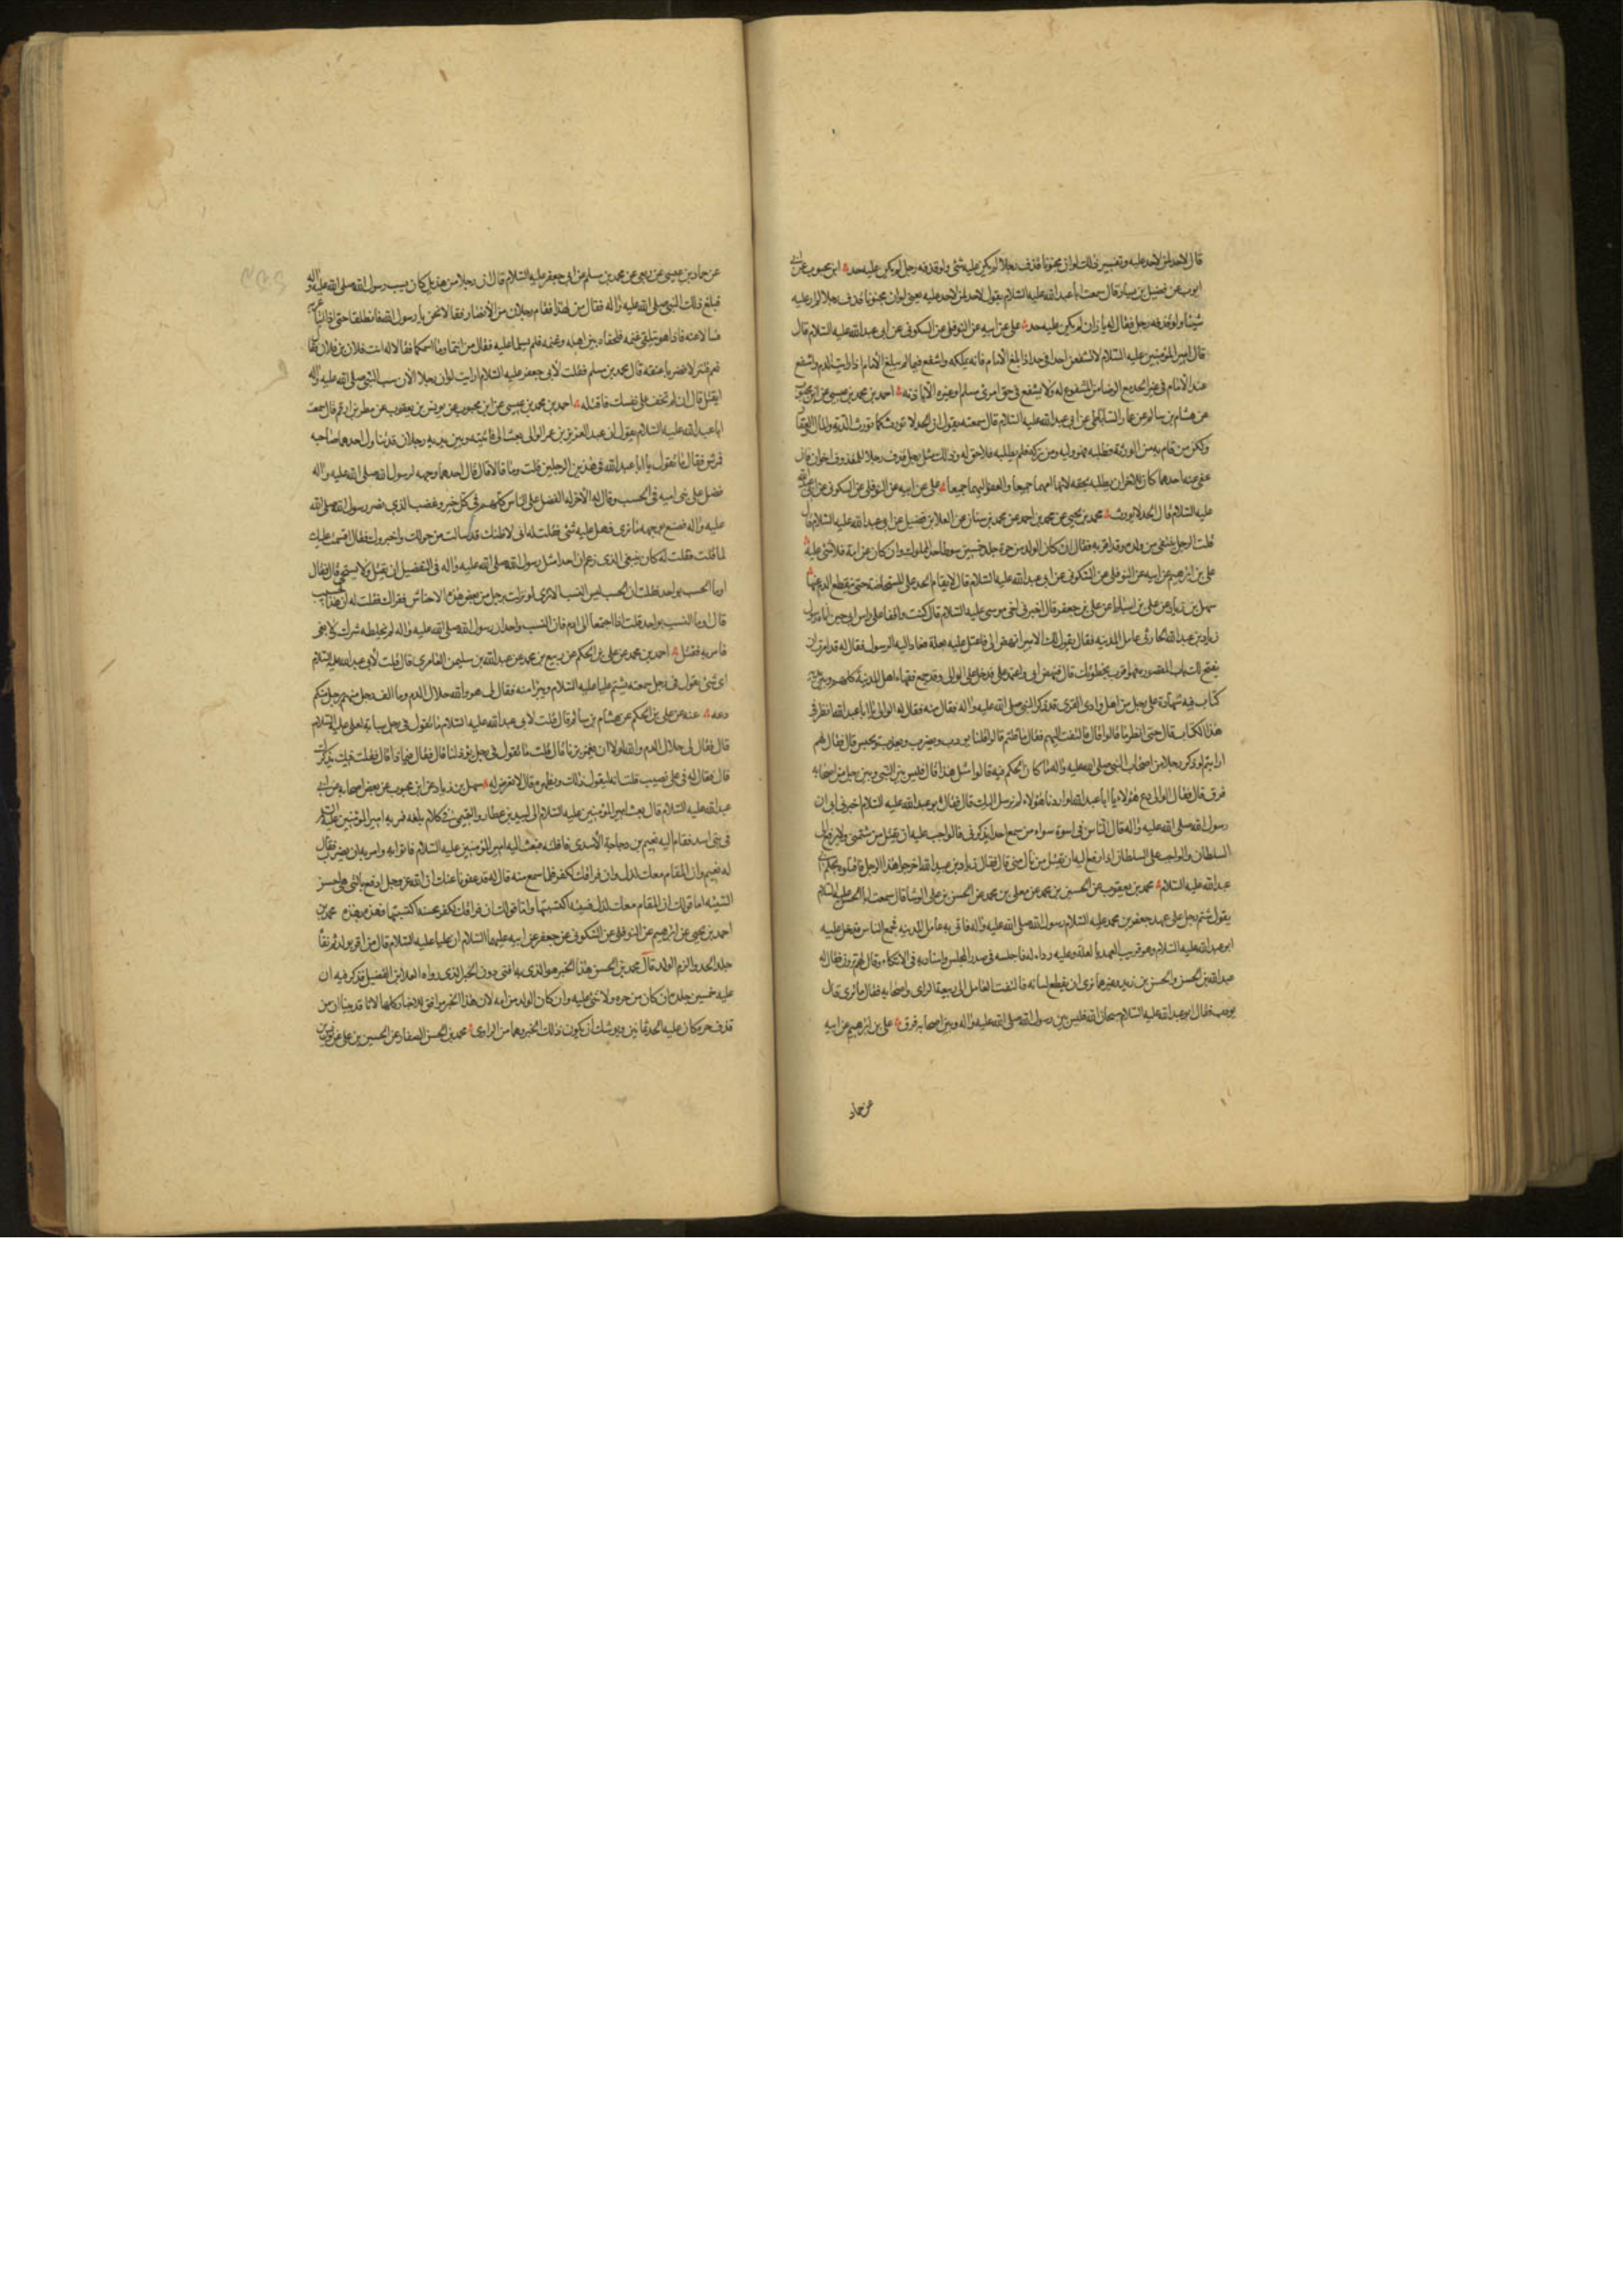 قال لاحد لمن لاحد عليه وتفسير ذلك لو ان مجنونا قذف رجلا لم يكن عليه شئ ولو قذفه رجل لم يكن عليه حد ابن محبوب عن ابى
ايوب عن فضيل بن يسار قال سمعت ابا عبد الله عليه السلام يقول لاحد لمن لاحد عليه يعنى لو ان مجنونا قذف رجلا لم ار عليه
شيئا ولو قذفه رجل فقال له يا زان لم يكن عليه حد على عن ابيه عن النوفلى عن السكونى عن ابى عبد الله عليه السلام قال
قال امير المؤمنين عليه السلام لا تشفعن احدا فى حد اذا بلغ الامام فانه يملكه واشفع فيما لم يبلغ الامام اذا رايت الندم واشفع
عند الامام فى غير الحد مع الرضا من المشفوع له ولا يشفع فى حق امرئ مسلم او غيره الا باذنه احمد بن محمد بن عيسى عن ابن محبوب
عن هشام بن سالم عن عمار الساباطى عن ابى عبد الله عليه السلام قال سمعته يقول ان الحد لا تورث كما تورث الدية والمال
ولكن من قام به من الورثة فطلبه فهو وليه ومن تركه فلم يطلبه فلا حق له وذلك مثل رجل قذف رجلا وللمقذوف اخوان فان
عفى عنه احدهما كان للاخر ان يطلبه بحقه لانها امهما جميعا والعفو اليهما جميعا على عن ابيه عن النوفلى عن السكونى عن ابى عبد الله
عليه السلام قال الحد لا يورث محمد بن يحيى عن محمد بن احمد عن محمد بن سنان عن العلا بن فضيل عن ابى عبد الله عليه السلام قال
قلت الرجل ينتفى من ولده وقد اقر به فقال ان كان الولد من حرة جلد خمسين سوطا حد المملوك وان كان من امة فلا شئ عليه
على بن ابرهيم عن ابيه عن النوفلى عن السكونى عن ابى عبد الله عليه السلام قال لا يقام الحد على المستحاضة حتى ينقطع الدم عنها
سهل بن زياد عن على بن اسباط عن على بن جعفر قال اخبرنى اخى موسى عليه السلام قال كنت واقفا على راس ابى حين اتاه رسول
زياد بن عبد الله الحارثى عامل المدينة فقال يقول لك الامير انهض الى فاعتل عليه بعلة فعاد اليه الرسول فقال له قد امر ان
يفتح لك باب المقصورة فهو اقرب لخطوتك قال فنهض ابى واعتمد على فدخل على الوالى وقد جمع فقهاء اهل المدينة كلهم وبين يديه
كتاب فيه شهادة على رجل من اهل وادى القرى قد ذكر النبى صلى الله عليه واله فقال منه فقال له الوالى يا ابا عبد الله انظر فى
هذا الكتاب قال حتى انظر ما قالوا قال فالتفت اليهم فقال ما قلتم قالوا قلنا يؤدب ويضرب ويعذب ويحبس قال فقال لهم
ارايتم لو ذكر رجلا من اصحاب النبى صلى الله عليه واله ما كان الحكم فيه قالوا مثل هذا قال فليس بين النبى وبين رجل من اصحابه
فرق قال فقال الوالى دع هؤلاء يا ابا عبد الله لو اردنا هؤلاء لم نرسل اليك قال فقال ابو عبد الله عليه السلام اخبرنى ابى ان
رسول الله صلى الله عليه واله قال الناس فى اسوة سواء من سمع احدا يذكرنى فالواجب عليه ان يقتل من شتمنى ولا يرفع الى
السلطان والواجب على السلطان اذا رفع اليه ان يقتل من نال منى قال فقال زياد بن عبيد الله اخرجوا هذا الرجل فاقتلوه بحكم ابى
عبد الله عليه السلام محمد بن يعقوب عن الحسين بن محمد عن معلى بن محمد عن الحسن بن على الوشا قال سمعت ابا الحسن عليه السلام
يقول شتم رجل على عهد جعفر بن محمد عليه السلام رسول الله صلى الله عليه واله فاتى به عامل المدينة فجمع الناس فدخل عليه
ابو عبد الله عليه السلام وهو قريب العهد بالعلة وعليه رداء له فاجلسه فى صدر المجلس واستاذنه فى الاتكاء وقال لهم ما ترون فقال له
عبد الله بن الحسن والحسن بن زيد وغيرهما نرى ان يقطع لسانه فالتفت العامل الى ربيعة الراى واصحابه فقال ما ترى قال
يودب فقال ابو عبد الله عليه السلام سبحان الله فليس بين رسول الله صلى الله عليه واله وبين اصحابه فرق على بن ابرهيم عن ابيه
عن حماد
عن حماد بن عيسى عن ربعى عن محمد بن مسلم عن ابى جعفر عليه السلام قال ان رجلا من هذيل كان يسب رسول الله صلى الله عليه واله
فبلغ ذلك النبى صلى الله عليه واله فقال من لهذا فقام رجلان من الانصار فقالا نحن يا رسول الله فانطلقا حتى اتيا
فسالا عنه فاذا هو يتلقى غنمه فلحقاه بين اهله وغنمه فلم يسلما عليه فقال من انتما وما اسمكما فقالا له انت فلان بن فلان فقال
نعم فنزلا فضربا عنقه قال محمد بن مسلم فقلت لابى جعفر عليه السلام ارايت لو ان رجلا الان سب النبى صلى الله عليه واله
ايقتل قال ان لم تخف على نفسك فاقتله احمد بن محمد بن عيسى عن ابن محبوب عن يونس بن يعقوب عن مطر بن ارقم قال سمعت
ابا عبد الله عليه السلام يقول ان عبد العزيز بن عمر الوالى بعث الى فاتيته وبين يديه رجلان قد تناول احدهما صاحبه
فمرش فقال ما تقول يا ابا عبد الله فى هذين الرجلين قلت وما قالا قال قال احدهما وجهه لرسول الله صلى الله عليه واله
فضل على بنى امية فى الحسب وقال له الاخر له الفضل على الناس كلهم فى كل خير وغضب الذى نصر رسول الله صلى الله
عليه واله فصنع بوجهه ما ترى فهل عليه شئ فقلت له انى لاظنك قد سالت من حولك واخبروك فقال اقسمت عليك
لما قلت فقلت له كان ينبغى الذى زعم ان احدا مثل رسول الله صلى الله عليه واله فى التفضيل ان يقتل ولا يستحيى قال فقال
اوما الحسب بواحد فقلت ان الحسب ليس النسب الا ترى لو نزلت برجل من بعض هذه الاجناس فقراك فقلت له ان هذا الحسيب
قال اوما النسب بواحد قلت اذا اجتمعا الى ادم فان النسب واحد ان رسول الله صلى الله عليه واله لم يخلطه شرك ولا بغى
فامر به فقتل احمد بن محمد عن على بن الحكم عن ربيع بن محمد عن عبد الله بن سليمن العامرى قال قلت لابى عبد الله عليه السلام
اى شئ تقول فى رجل سمعته يشتم عليا عليه السلام ويبرا منه فقال لى هو والله حلال الدم وما الف رجل منهم برجل منكم
دعه عنه عن على بن الحكم عن هشام بن سالم قال قلت لابى عبد الله عليه السلام ما تقول فى رجل سبابة لعلى عليه السلام
قال فقال لى حلال الدم والله لولا ان يعم بريئا قال قلت ما تقول فى رجل موذ لنا قال فقال فيما ذا قال فقلت فيك يذكرك
قال فقال له فى على نصيب قلت انه ليقول ذلك ويظهره قال لا تعرض له سهل بن زياد عن ابن محبوب عن بعض اصحابه عن ابى
عبد الله عليه السلام قال بعث امير المؤمنين عليه السلام الى لبيد بن عطارد التميمى فى كلام بلغه فمر به امير المؤمنين عليه السلام
فى بنى اسد فقام اليه نعيم بن دجاجة الاسدى فافلته فبعث اليه امير المؤمنين عليه السلام فاتوا به وامر به ان يضرب فقال
له نعيم وان المقام معك لذل وان فراقك لكفر فلما سمع منه قال له قد عفونا عنك ان الله عز وجل ادفع بالتى هى احسن
السيئة اما قولك ان المقام معك لذل فسيئة اكتسبتها واما قولك ان فراقك لكفر بحسنة اكتسبتها فهذه بهذه محمد بن
احمد بن يحيى عن ابرهيم عن النوفلى عن السكونى عن جعفر عن ابيه عليهما السلام ان عليا عليه السلام قال من اقر بولد ثم نفاه
جلد الحد والزم الولد قال محمد بن الحسن هذا الخبر هو الذى به افتى دون الخبر الذى رواه العلا بن الفضيل قد ذكر فيه ان
عليه خمسين جلدة ان كان من حرة ولا شئ عليه وان كان الولد من امه لان هذا الخبر موافق للاخبار كلها لانا قد بينا ان من
قذف حرة كان عليه الحد ثمانين ويوشك ان يكون ذلك الخبر وهما من الراوى محمد بن الحسن الصفار عن الحسين بن على عن يونس بن